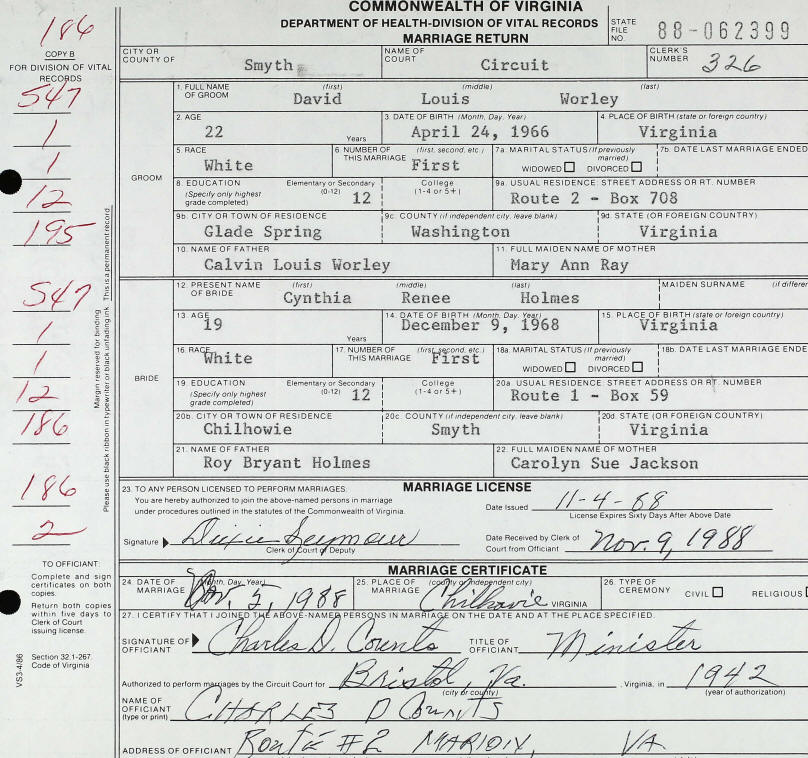 COMMONWEALTH OF VIRGINIA
DEPARTMENT OF HEALTH-DIVISION OF VITAL RECORDS
MARRIAGE RETURN
STATE FILE NO. 88-062399
186
COPY B
FOR DIVISION OF VITAL RECORDS
CITY OR COUNTY OF Smyth NAME OF COURT Circuit CLERK'S NUMBER 326
547
1
1
12
195
547
1
1
12
186
186
2
Margin reserved for binding
Please use black ribbon in typewriter or black unfading ink. This is a permanent record.
GROOM
1. FULL NAME OF GROOM (first) David (middle) Louis (last) Worley
2. AGE 22 Years 3. DATE OF BIRTH (Month, Day, Year) April 24, 1966 4. PLACE OF BIRTH (state or foreign country) Virginia
5. RACE White 6. NUMBER OF THIS MARRIAGE (first, second, etc.) First 7a. MARITAL STATUS (If previously married) WIDOWED DIVORCED 7b. DATE LAST MARRIAGE ENDED
8. EDUCATION (Specify only highest grade completed) Elementary or Secondary (0-12) 12 College (1-4 or 5+) 9a. USUAL RESIDENCE: STREET ADDRESS OR RT. NUMBER Route 2 - Box 708
9b. CITY OR TOWN OF RESIDENCE Glade Spring 9c. COUNTY (if independent city, leave blank) Washington 9d. STATE (OR FOREIGN COUNTRY) Virginia
10. NAME OF FATHER Calvin Louis Worley 11. FULL MAIDEN NAME OF MOTHER Mary Ann Ray
BRIDE
12. PRESENT NAME OF BRIDE (first) Cynthia (middle) Renee (last) Holmes MAIDEN SURNAME (if differe
13. AGE 19 Years 14. DATE OF BIRTH (Month, Day, Year) December 9, 1968 15. PLACE OF BIRTH (state or foreign country) Virginia
16. RACE White 17. NUMBER OF THIS MARRIAGE (first, second, etc.) First 18a. MARITAL STATUS (If previously married) WIDOWED DIVORCED 18b. DATE LAST MARRIAGE ENDE
19. EDUCATION (Specify only highest grade completed) Elementary or Secondary (0-12) 12 College (1-4 or 5+) 20a. USUAL RESIDENCE: STREET ADDRESS OR RT. NUMBER Route 1 - Box 59
20b. CITY OR TOWN OF RESIDENCE Chilhowie 20c. COUNTY (if independent city, leave blank) Smyth 20d. STATE (OR FOREIGN COUNTRY) Virginia
21. NAME OF FATHER Roy Bryant Holmes 22. FULL MAIDEN NAME OF MOTHER Carolyn Sue Jackson
23. TO ANY PERSON LICENSED TO PERFORM MARRIAGES: MARRIAGE LICENSE
You are hereby authorized to join the above-named persons in marriage
under procedures outlined in the statutes of the Commonwealth of Virginia.
Date Issued 11-4-88
License Expires Sixty Days After Above Date
Signature Dixie Seymour
Clerk of Court of Deputy
Date Received by Clerk of Court from Officiant Nov. 9, 1988
TO OFFICIANT:
Complete and sign certificates on both copies.
Return both copies within five days to Clerk of Court issuing license.
Section 32.1-267. Code of Virginia
VS3-4/86
MARRIAGE CERTIFICATE
24. DATE OF MARRIAGE (Month, Day, Year) Nov. 5, 1988 25. PLACE OF MARRIAGE (county or independent city) Chilhowie VIRGINIA 26. TYPE OF CEREMONY CIVIL RELIGIOUS
27. I CERTIFY THAT I JOINED THE ABOVE-NAMED PERSONS IN MARRIAGE ON THE DATE AND AT THE PLACE SPECIFIED.
SIGNATURE OF OFFICIANT Charles D. Counts TITLE OF OFFICIANT Minister
Authorized to perform marriages by the Circuit Court for Bristol, Va. (city or county), Virginia, in 1942 (year of authorization)
NAME OF OFFICIANT (type or print) CHARLES D Counts
ADDRESS OF OFFICIANT Route #2 MARION, VA